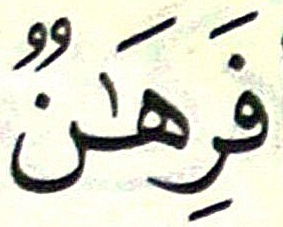 فَرِهَٰنٌ